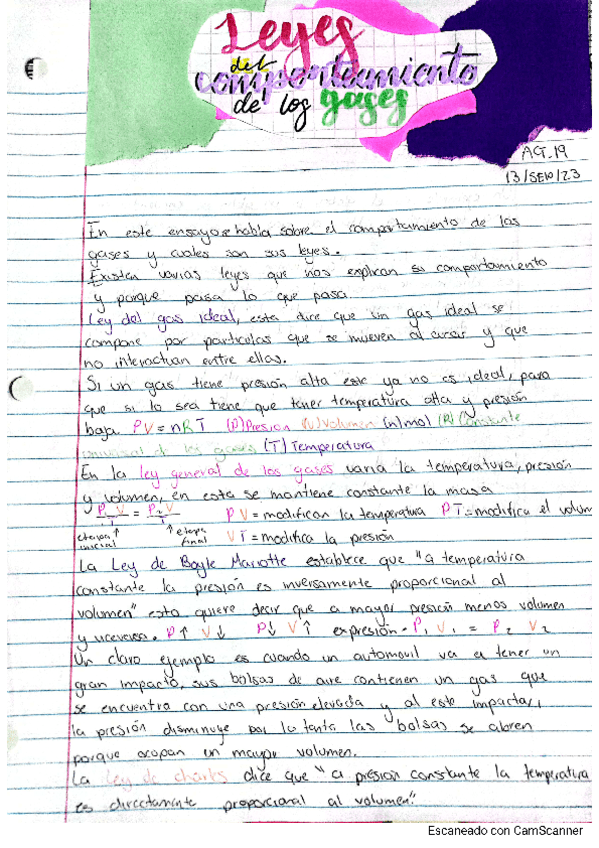 Leyes
del
comportamiento
de los gases
ACT.19
13/SEP/23
En este ensayo se habla sobre el comportamiento de los
gases y cuales son sus leyes.
Existen varias leyes que nos explican su comportamiento
y porque pasa lo que pasa.
Ley del gas ideal, esta dice que un gas ideal se
compone por particulas que se mueven al azar y que
no interactuan entre ellas.
Si un gas tiene presión alta este ya no es ideal, para
que si lo sea tiene que tener temperatura alta y presión
baja PV=nRT (P)Presion (V)Volumen (n)mol (R)Constante
universal de los gases (T)Temperatura
En la ley general de los gases varia la temperatura, presión
y volumen, en esta se mantiene constante la masa
P₁V/T = P₂V/T PV=modifican la temperatura PT=modifica el volum
etapa inicial ↑ ↑ etapa final VT=modifica la presión
La Ley de Boyle Mariotte establece que "a temperatura
constante la presión es inversamente proporcional al
volumen" esto quiere decir que a mayor presión menos volumen
y viceversa. P↑ V↓ P↓ V↑ expresión- P₁ V₁ = P₂ V₂
Un claro ejemplo es cuando un automovil va a tener un
gran impacto, sus bolsas de aire contienen un gas que
se encuentra con una presión elevada y al este impactar,
la presión disminuye por lo tanto las bolsas se abren
porque ocupan un mayor volumen.
La ley de charles dice que "a presión constante la temperatura
es directamente proporcional al volumen".
Escaneado con CamScanner